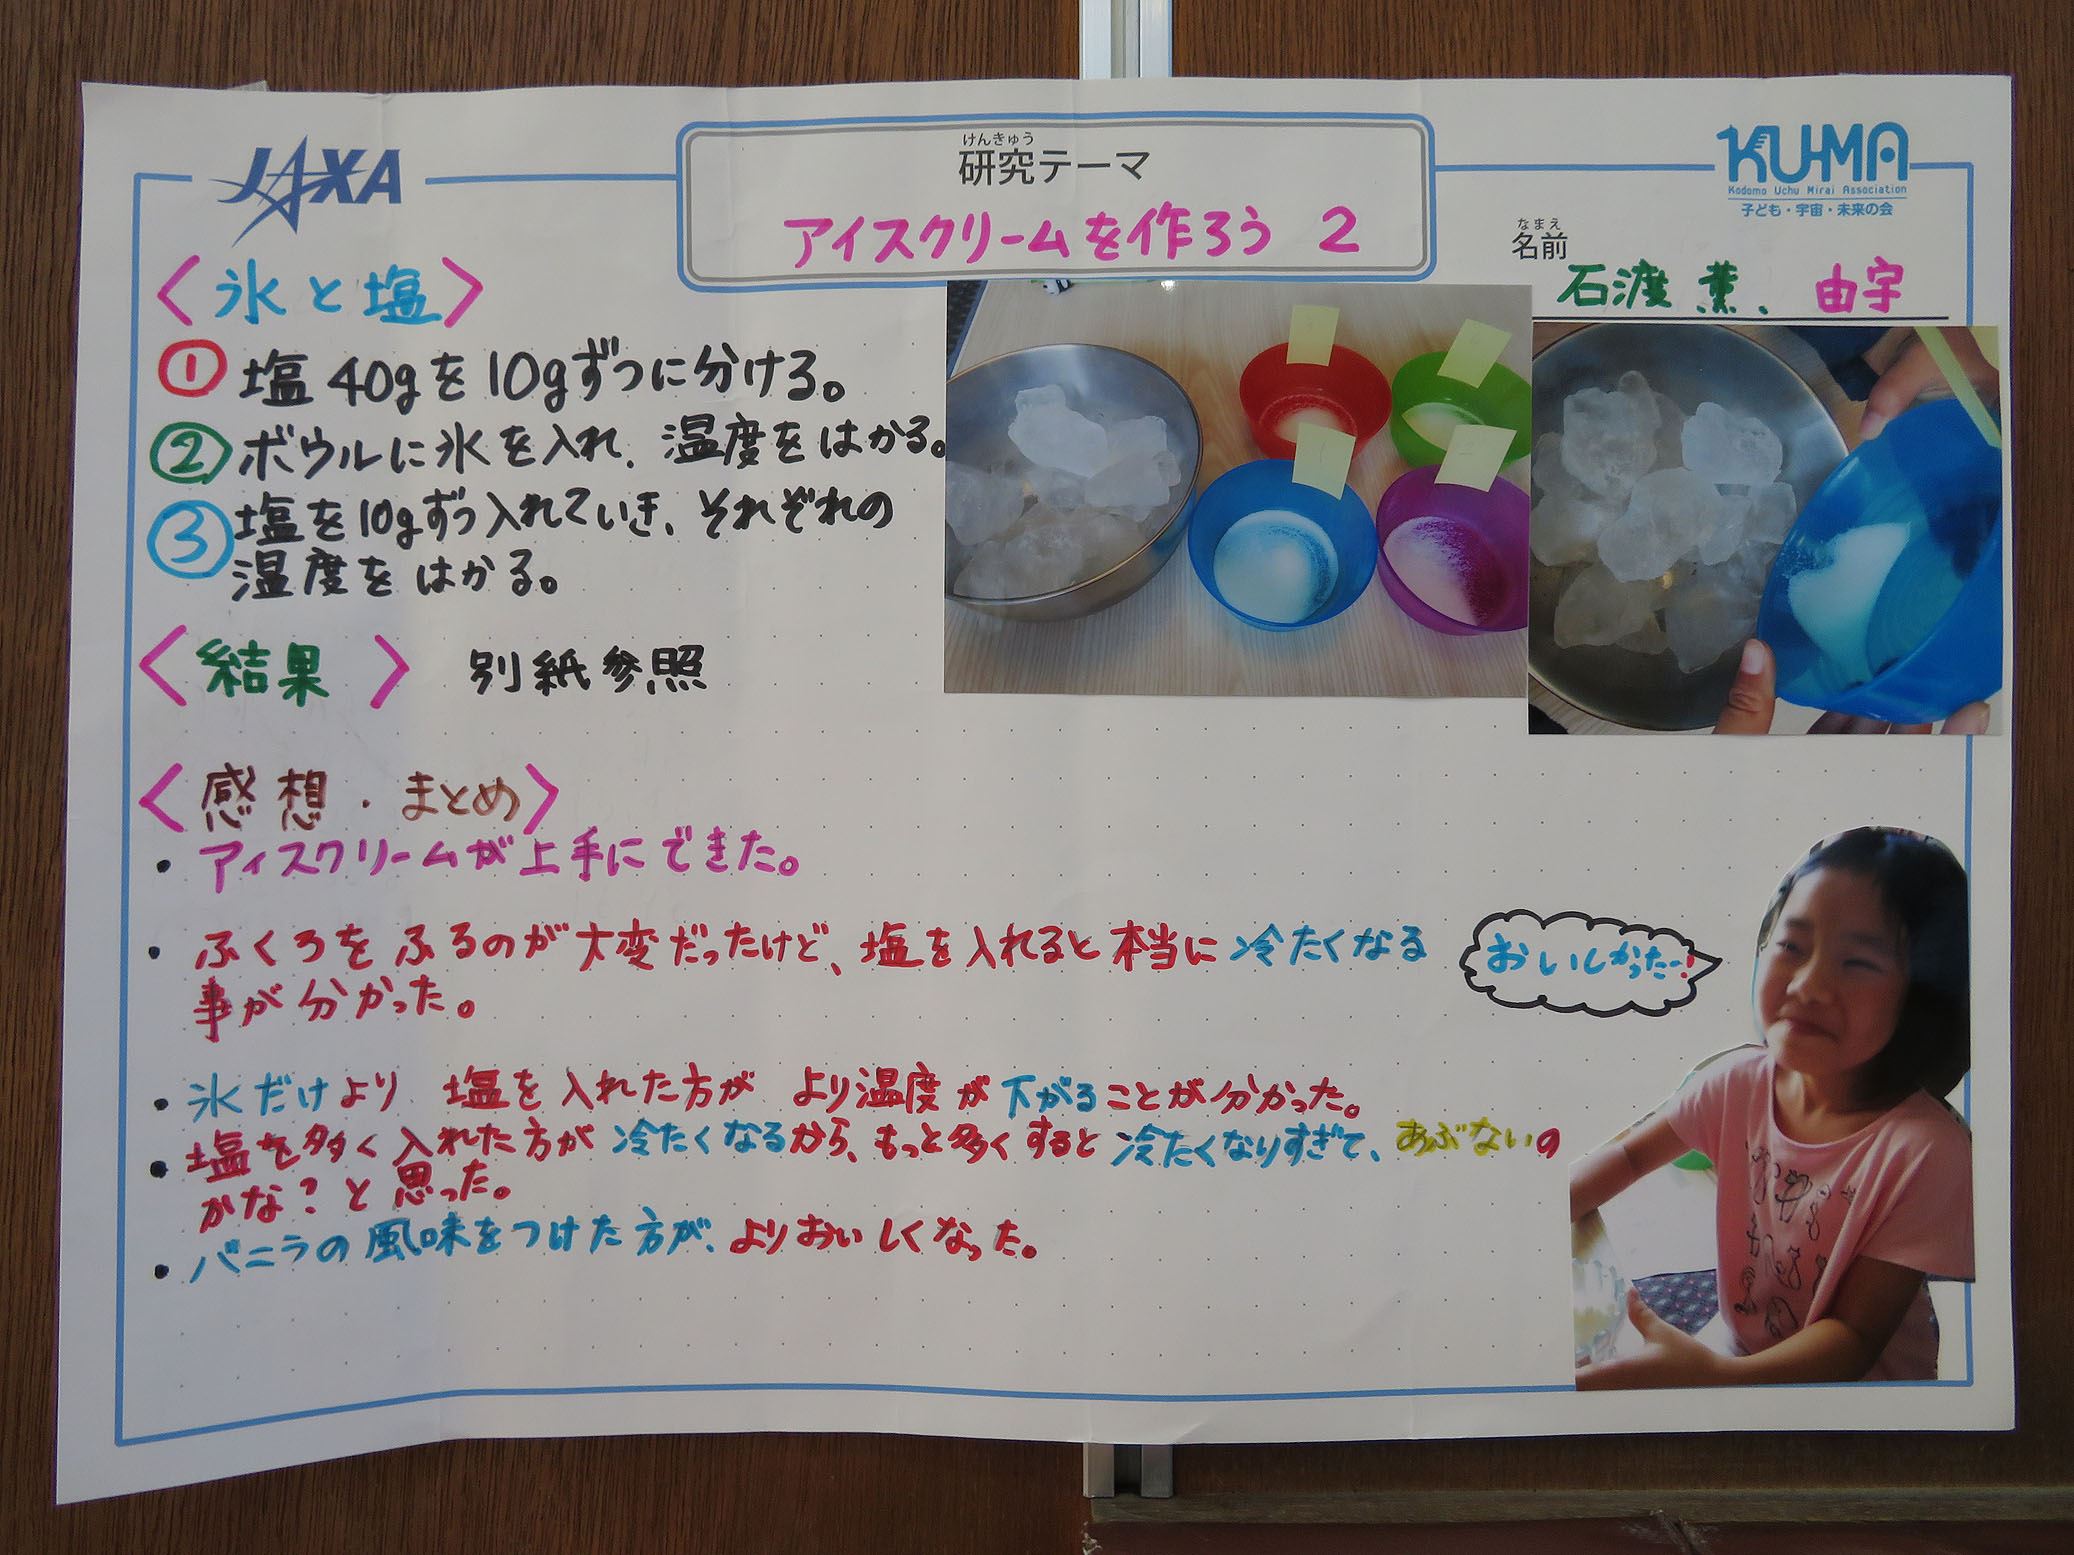 JAXA
けんきゅう
研究テーマ
アイスクリームを作ろう 2
KU-MA
Kodomo Uchu Mirai Association
子ども・宇宙・未来の会
なまえ
名前
石渡 薫、由宇
〈氷と塩〉
① 塩40gを10gずつに分ける。
② ボウルに氷を入れ、温度をはかる。
③ 塩を10gずつ入れていき、それぞれの
温度をはかる。
〈結果〉 別紙参照
〈感想・まとめ〉
・アイスクリームが上手にできた。
・ふくろをふるのが大変だったけど、塩を入れると本当に冷たくなる
事が分かった。
・氷だけより 塩を入れた方が より温度が下がることが分かった。
・塩を多く入れた方が冷たくなるから、もっと多くすると冷たくなりすぎて、あぶないの
かな?と思った。
・バニラの風味をつけた方が、よりおいしくなった。
おいしかったー!